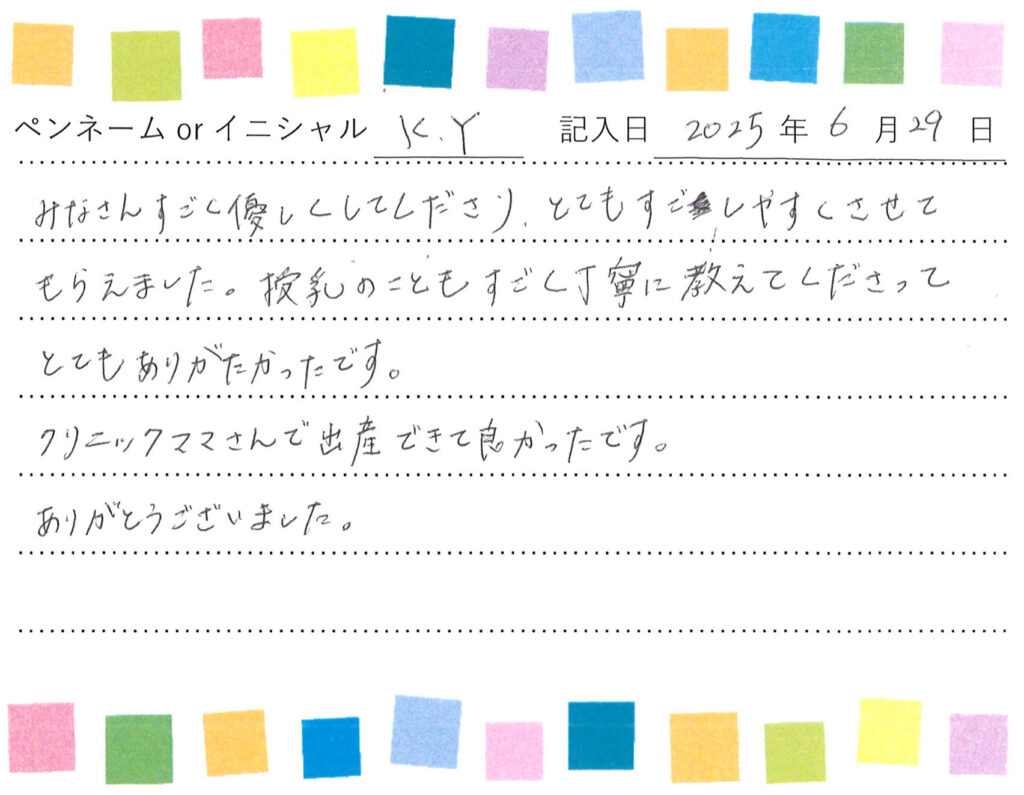 ペンネーム or イニシャル K.Y 記入日 2025 年 6 月 29 日
みなさんすごく優しくしてくださり、とてもすごしやすくさせて
もらえました。授乳のこともすごく丁寧に教えてくださって
とてもありがたかったです。
クリニックママさんで出産できて良かったです。
ありがとうございました。